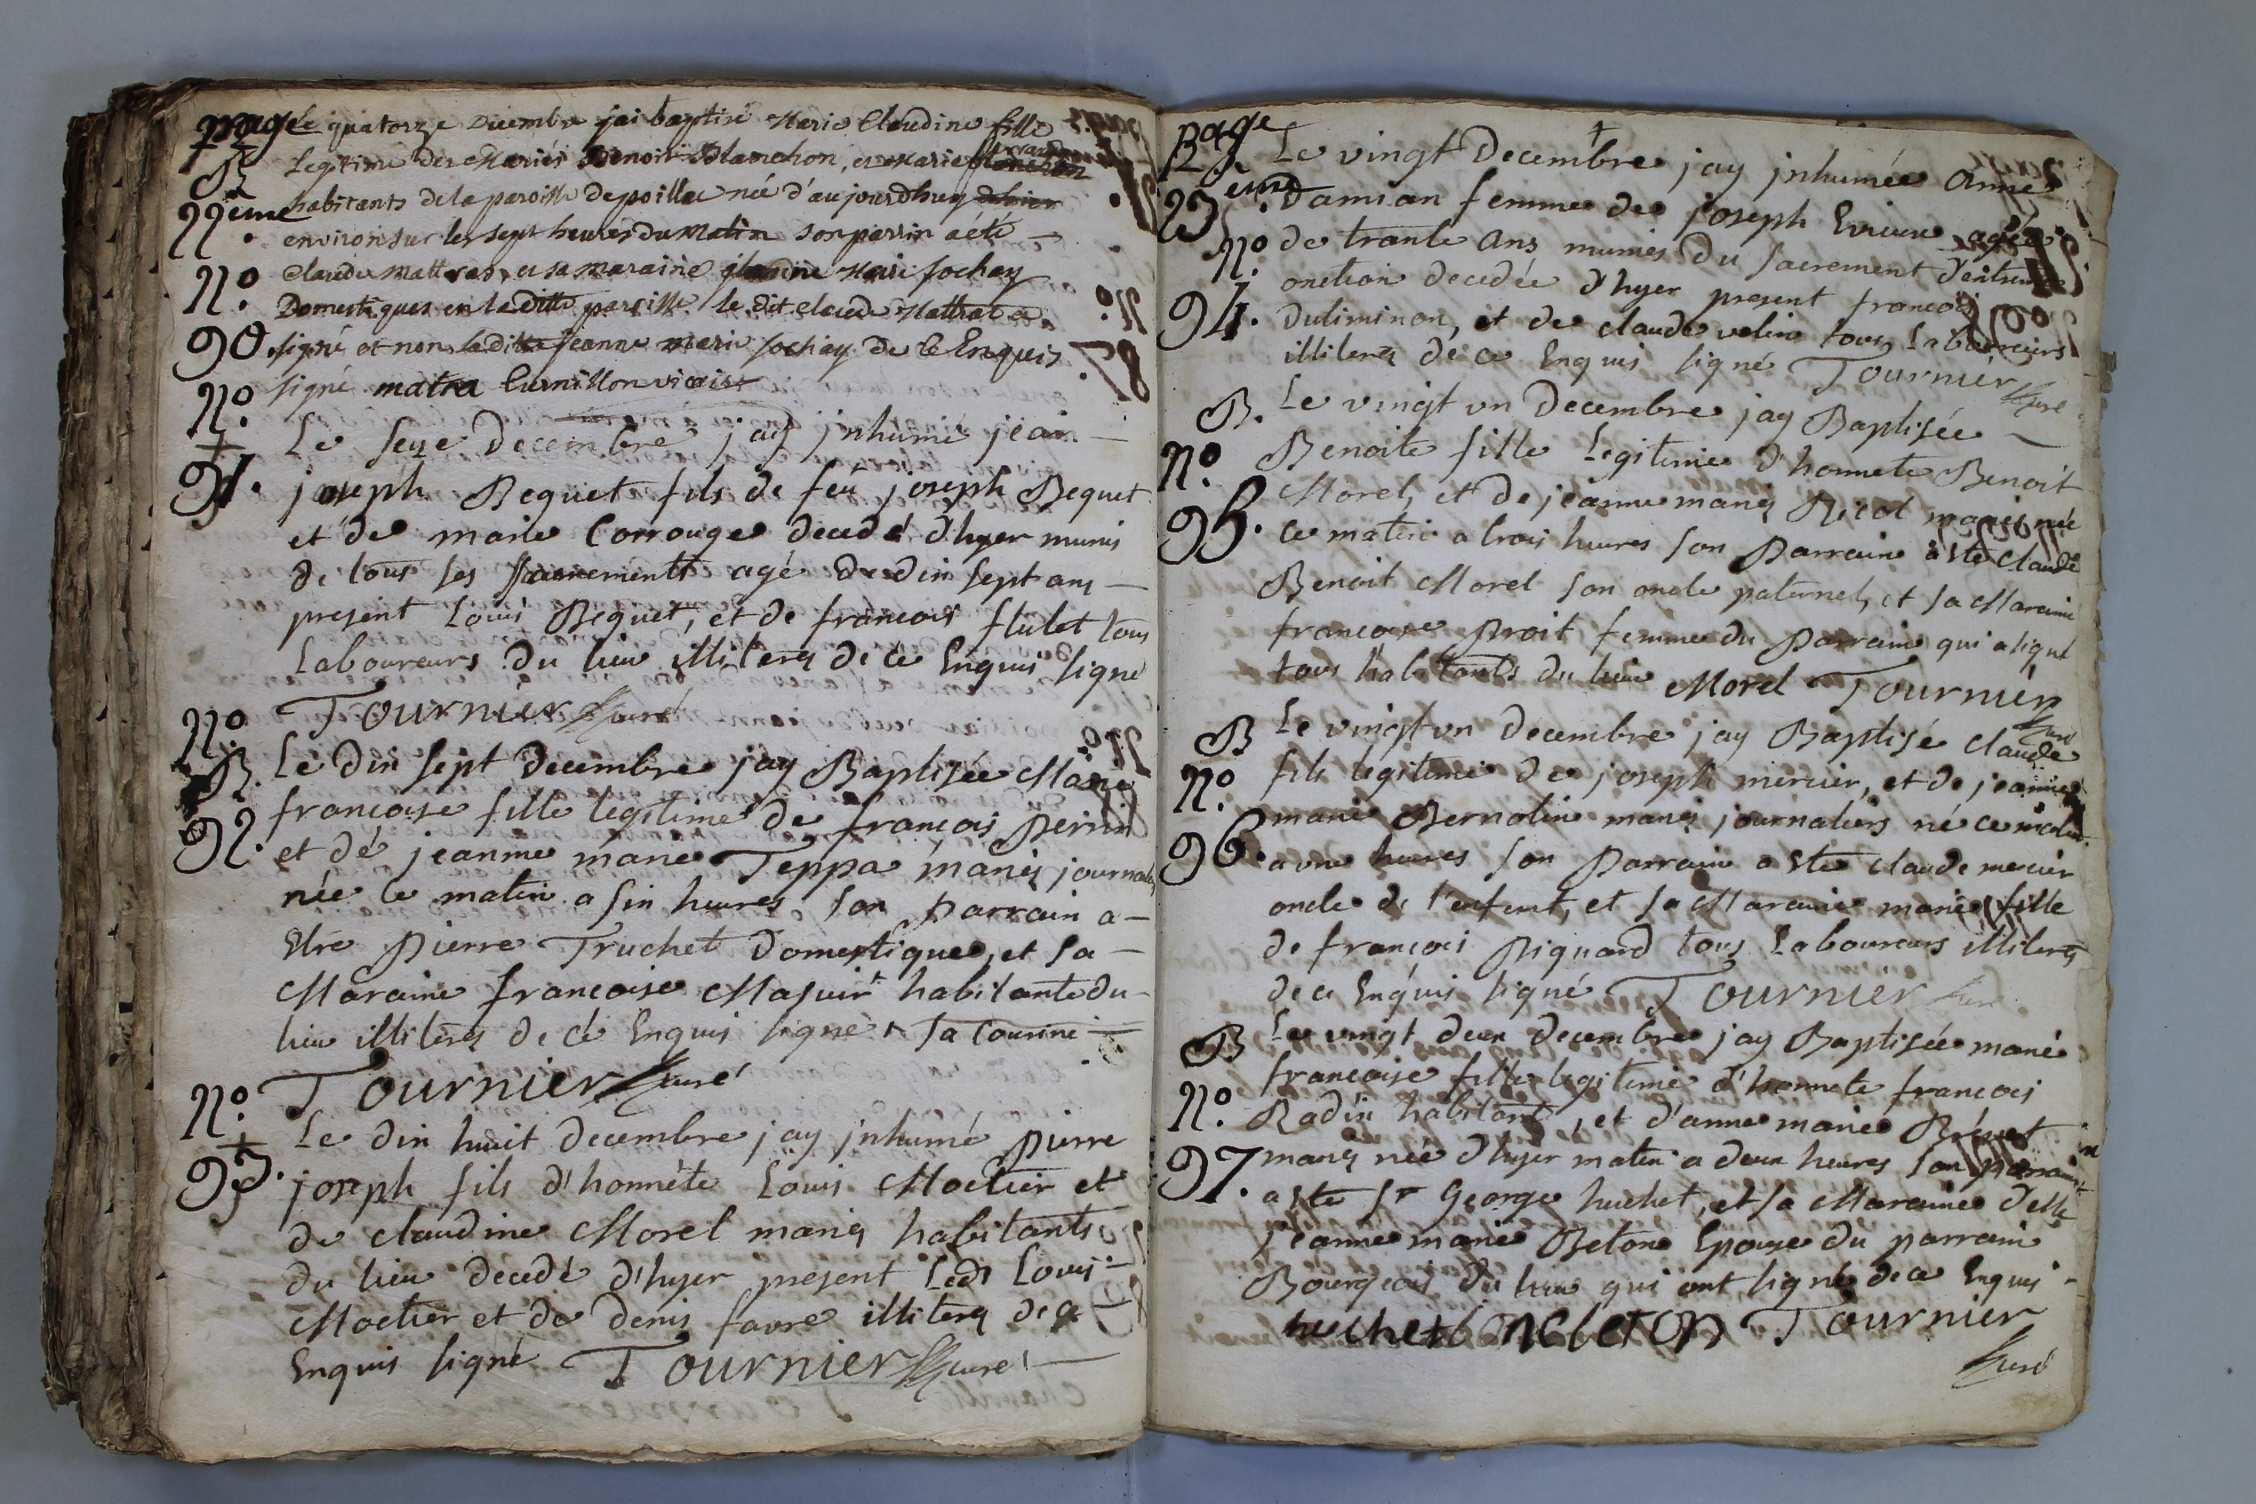 page
Le quatorze Decembre jai baptisé Marie Claudine fille
B
Legitime des Mariés Benoit Blanchon, et Marie
22eme
habitants de la paroisse de poillac née d'aujourdhuy
environ sur les sept heures du Matin son parrin a été
n°
Claude Mattras, et sa maraine jeanne Marie Jochay
Domestiques en la ditte paroisse le dit claude Mathrat a
90.
signé et non la ditte jeanne marie Jochay de ce Enquis
signé matra Curnillon vicaire
n°
Le seize Decembre jay jnhumé jean
91.
joseph Bequet fils de feu joseph Bequet
et de marie Corrouge decedé d'hyer munis
de tous ses sacrements agé de dix sept ans
present Louis Bequet, et de francois flulet tous
Laboureurs du lieu illiterés de ce Enquis signé
n°
Tournier curé
B.
Le dix sept Decembre jay Baptisée Marie
francoise fille legitime de françois Perrin
92.
et de jeanne marie Teppa mariés journaliers
née ce matin a six heures son parrain a
Etre Pierre Truchet Domestique, et sa
Maraine francoise Masuir habitante du
lieu illiterés de ce Enquis signé
Tournier curé
n°
Le dix huit decembre jay jnhumé Pierre
93.
joseph fils d'honnète Louis Moctier et
de claudine Morel mariés habitants
du lieu decedé d'hyer present Ledt Louis
Moctier et de denis favre illiterés de ce
Enquis signé Tournier curé
page
Le vingt Decembre jay jnhumée Anne
23eme
Damian femme de joseph agée
n°
de trante ans munies du sacrement d'extreme
onction decedée d'hyer present francois
94.
Duliminon, et de claude velin tous Laboureurs
illiterés de ce Enquis signé Tournier curé
B.
Le vingt un Decembre jay Baptisée
n°
Benoite fille Legitime d'honnete Benoit
Morel, et de jeanne marie Nicol mariés née
95.
ce matin a trois heures son Parrain a Eté Claude
Benoit Morel son oncle paternel, et sa Maraine
francoise Proit femme du Parrain qui a signé
tous habitants du lieu Morel Tournier curé
B
Le vingt un Decembre jay Baptisé claude
n°
fils legitime de joseph mercier, et de jeanne
marie Bernolin mariés journaliers né ce matin
96.
a une heures son Parrain a Eté claude mercier
oncle de l'enfent, et sa Maraine marie fille
de françois Piquard tous Laboureurs illiterés
de ce Enquis signé Tournier curé
B
Le vingt deux decembre jay Baptisée marie
francoise fille legitime d'honnete francois
n°.
Radix habitant, et d'anne marie
97.
mariés née d'hyer matin a deux heures son parrain
a Eté Sr George huchet, et sa Maraine delle
jeanne marie Betone Epouse du parrain
Bourgeois du lieu qui ont signé de ce Enquis
huchet Tournier
curé